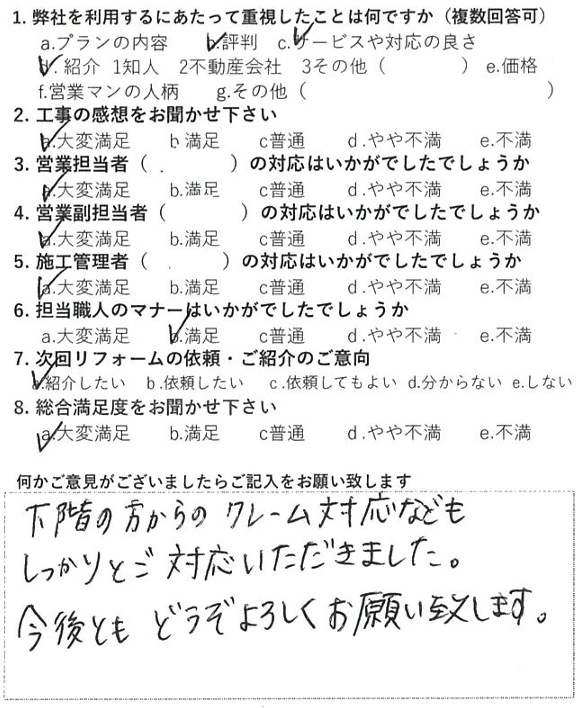 1. 弊社を利用するにあたって重視したことは何ですか（複数回答可）
a.プランの内容 b.評判 c.サービスや対応の良さ
d. 紹介 1知人 2不動産会社 3その他（ ） e.価格
f.営業マンの人柄 g.その他（ ）
2. 工事の感想をお聞かせ下さい
a.大変満足 b満足 c普通 d.やや不満 e.不満
3. 営業担当者（ ）の対応はいかがでしたでしょうか
a.大変満足 b.満足 c普通 d.やや不満 e.不満
4. 営業副担当者（ ）の対応はいかがでしたでしょうか
a.大変満足 b.満足 c普通 d.やや不満 e.不満
5. 施工管理者（ ）の対応はいかがでしたでしょうか
a.大変満足 b.満足 c普通 d.やや不満 e.不満
6. 担当職人のマナーはいかがでしたでしょうか
a.大変満足 b.満足 c普通 d.やや不満 e.不満
7. 次回リフォームの依頼・ご紹介のご意向
a.紹介したい b.依頼したい c.依頼してもよい d.分からない e.しない
8. 総合満足度をお聞かせ下さい
a.大変満足 b.満足 c普通 d.やや不満 e.不満
何かご意見がございましたらご記入をお願い致します
下階の方からのクレーム対応なども
しっかりとご対応いただきました。
今後とも どうぞよろしくお願い致します。